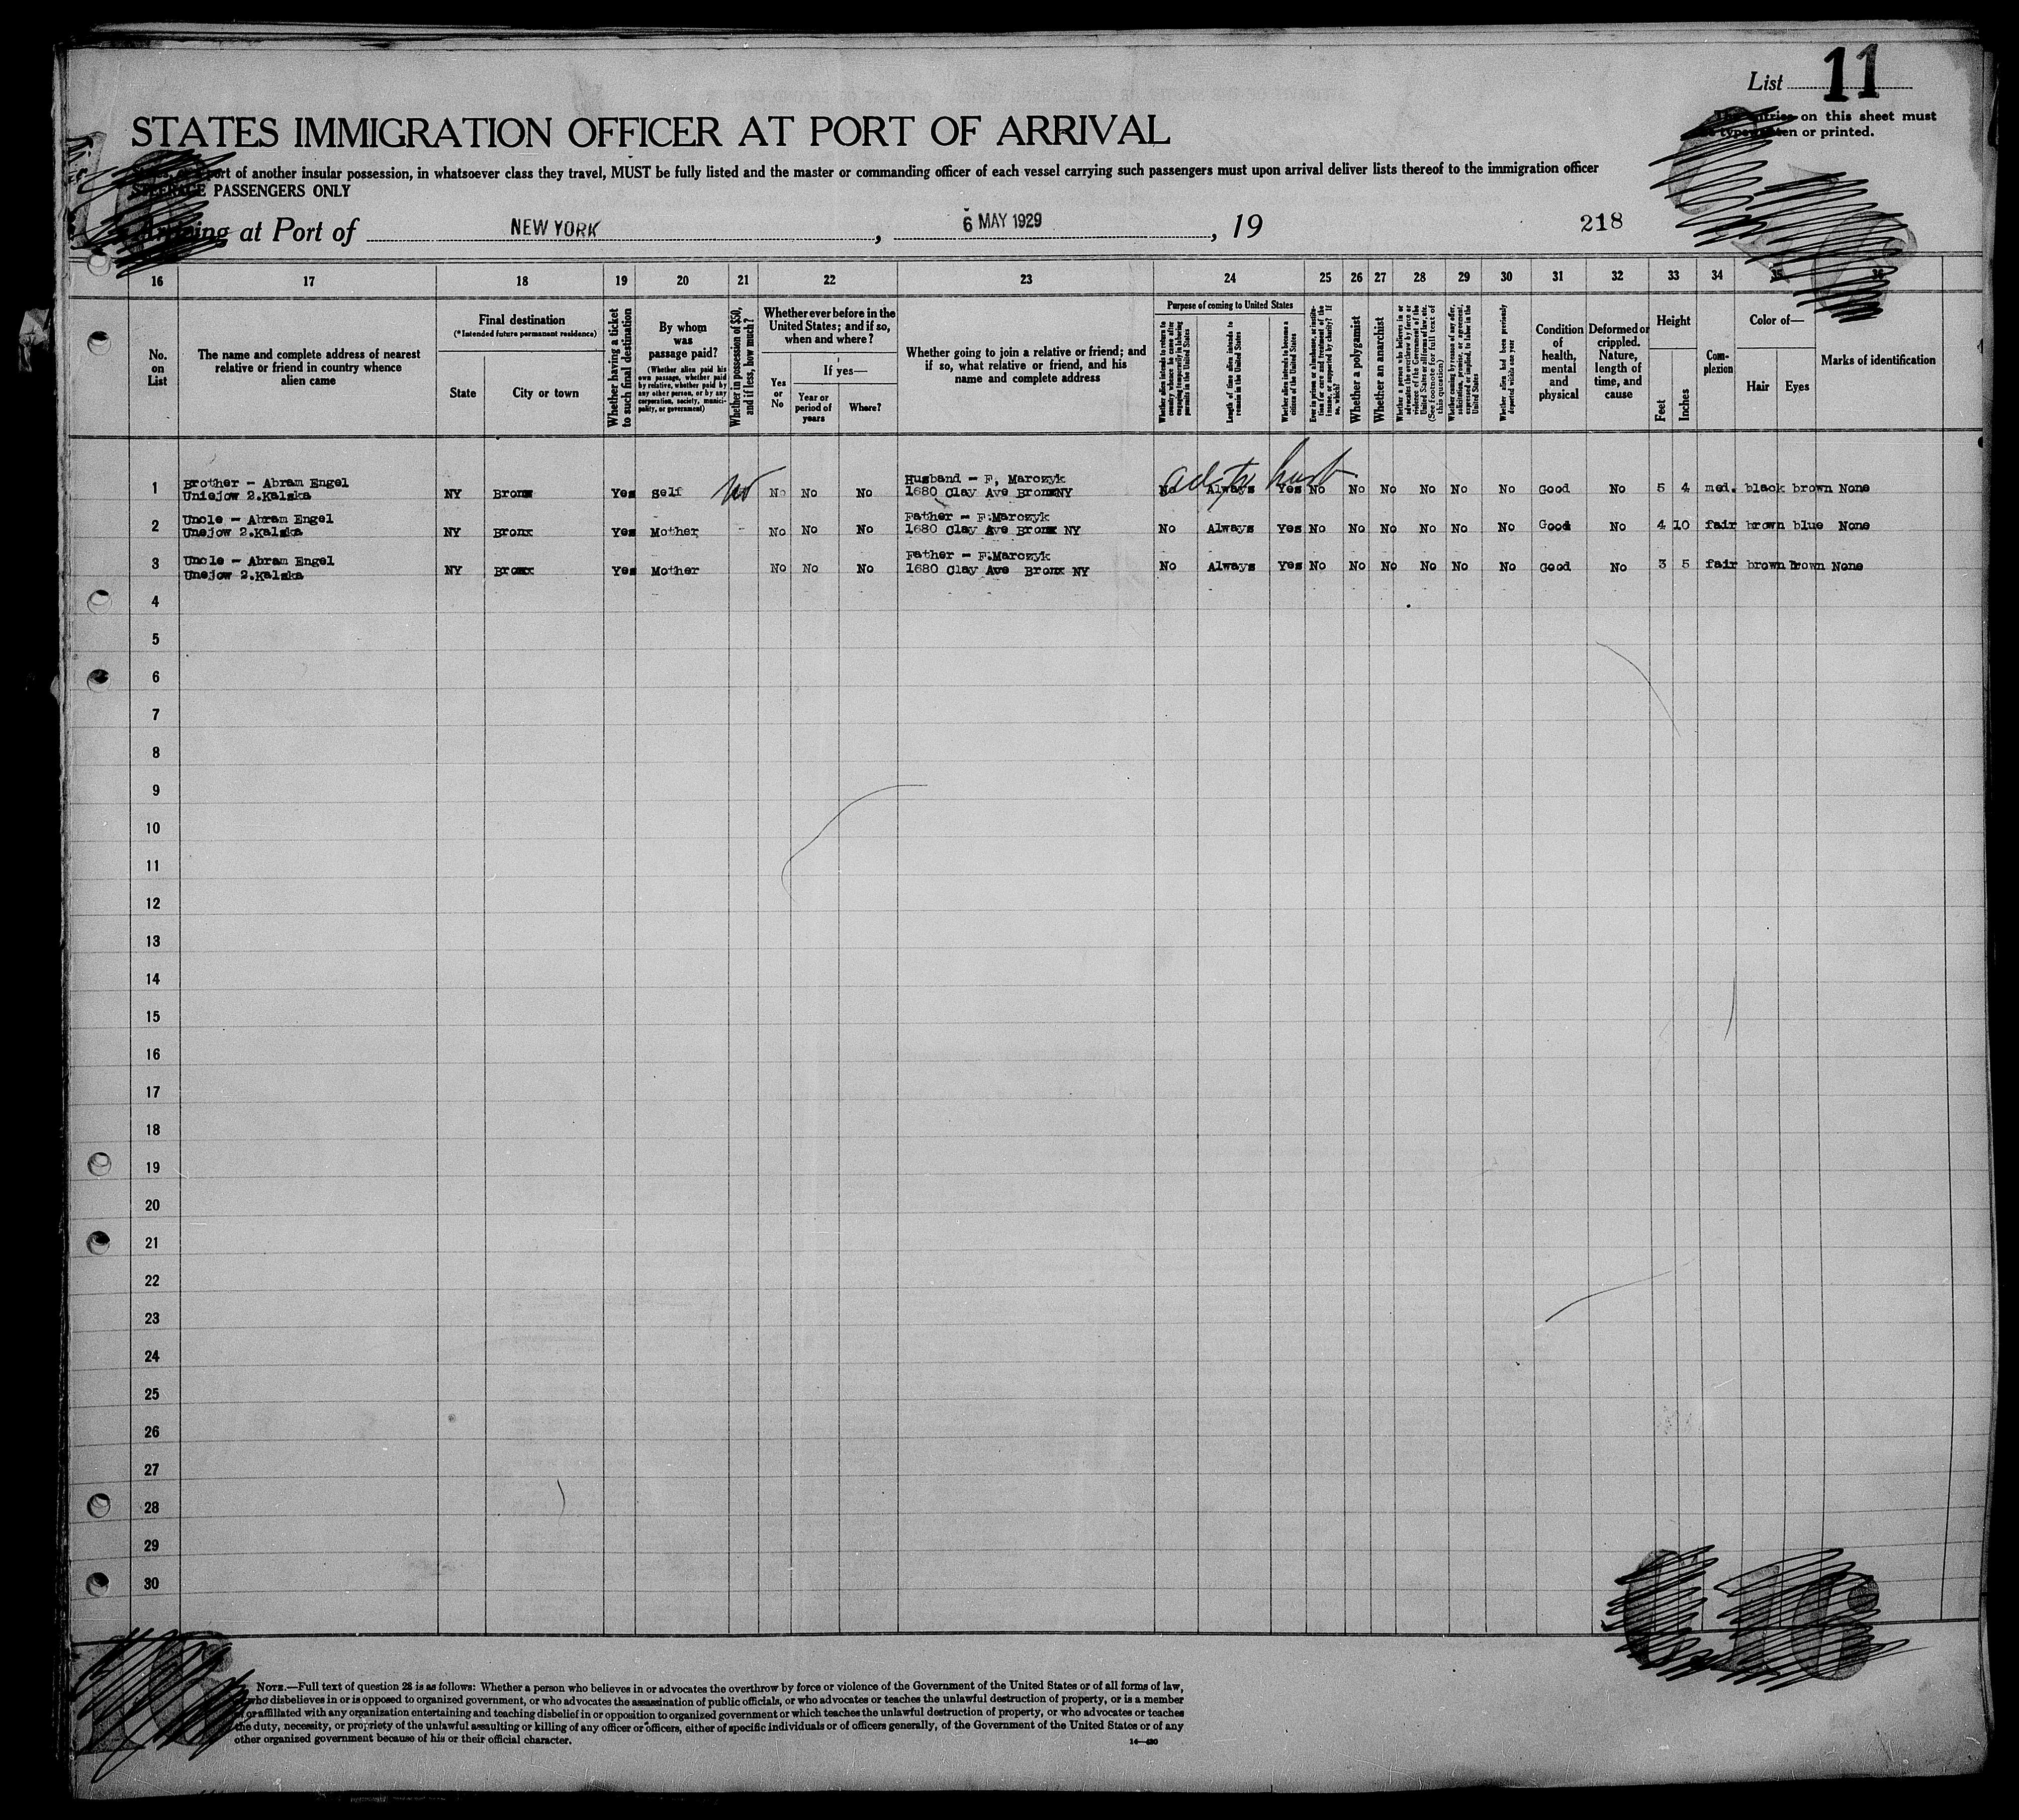 List 11
The entries on this sheet must
be typewritten or printed.
STATES IMMIGRATION OFFICER AT PORT OF ARRIVAL
port of another insular possession, in whatsoever class they travel, MUST be fully listed and the master or commanding officer of each vessel carrying such passengers must upon arrival deliver lists thereof to the immigration officer
STEERAGE PASSENGERS ONLY
Arriving at Port of NEW YORK , 6 MAY 1929 , 19
218
16 17 18 19 20 21 22 23 24 25 26 27 28 29 30 31 32 33 34 35 36
No. on List
The name and complete address of nearest relative or friend in country whence alien came
Final destination
(*Intended future permanent residence)
State
City or town
Whether having a ticket to such final destination
By whom was passage paid?
(Whether alien paid his own passage, whether paid by relative, whether paid by any other person, or by any corporation, society, municipality, or government)
Whether in possession of $50, and if less, how much?
Whether ever before in the United States; and if so, when and where?
Yes or No
If yes—
Year or period of years
Where?
Whether going to join a relative or friend; and if so, what relative or friend, and his name and complete address
Purpose of coming to United States
Whether alien intends to return to country whence he came after engaging temporarily in laboring pursuits in the United States
Length of time alien intends to remain in the United States
Whether alien intends to become a citizen of the United States
Ever in prison or almshouse, or institution for care and treatment of the insane, or supported by charity? If so, which?
Whether a polygamist
Whether an anarchist
Whether a person who believes in or advocates the overthrow by force or violence of the Government of the United States or all forms of law, etc. (See footnote for full text of this question)
Whether coming by reason of any offer, solicitation, promise, or agreement, expressed or implied, to labor in the United States
Whether alien had been previously deported within one year
Condition of health, mental and physical
Deformed or crippled. Nature, length of time, and cause
Height
Feet
Inches
Complexion
Color of—
Hair
Eyes
Marks of identification
ad to husb
1 Brother - Abram Engel Husband - F, Marczyk
Uniejow 2.Kalska NY Bronx Yes self No No No 1680 Clay Ave Bronx NY No Always Yes No No No No No No Good No 5 4 med. black brown None
2 Uncle - Abram Engel Father - F.Marczyk
Unejow 2.Kalska NY Bronx Yes Mother No No No 1680 Clay Ave Bronx NY No Always Yes No No No No No No Good No 4 10 fair brown blue None
3 Uncle - Abram Engel Father - F.Marczyk
Unejow 2.Kalska NY Bronx Yes Mother No No No 1680 Clay Ave Bronx NY No Always Yes No No No No No No Good No 3 5 fair brown brown None
4
5
6
7
8
9
10
11
12
13
14
15
16
17
18
19
20
21
22
23
24
25
26
27
28
29
30
NOTE.—Full text of question 28 is as follows: Whether a person who believes in or advocates the overthrow by force or violence of the Government of the United States or of all forms of law,
who disbelieves in or is opposed to organized government, or who advocates the assassination of public officials, or who advocates or teaches the unlawful destruction of property, or is a member
of or affiliated with any organization entertaining and teaching disbelief in or opposition to organized government or which teaches the unlawful destruction of property, or who advocates or teaches
the duty, necessity, or propriety of the unlawful assaulting or killing of any officer or officers, either of specific individuals or of officers generally, of the Government of the United States or of any
other organized government because of his or their official character.
14—430